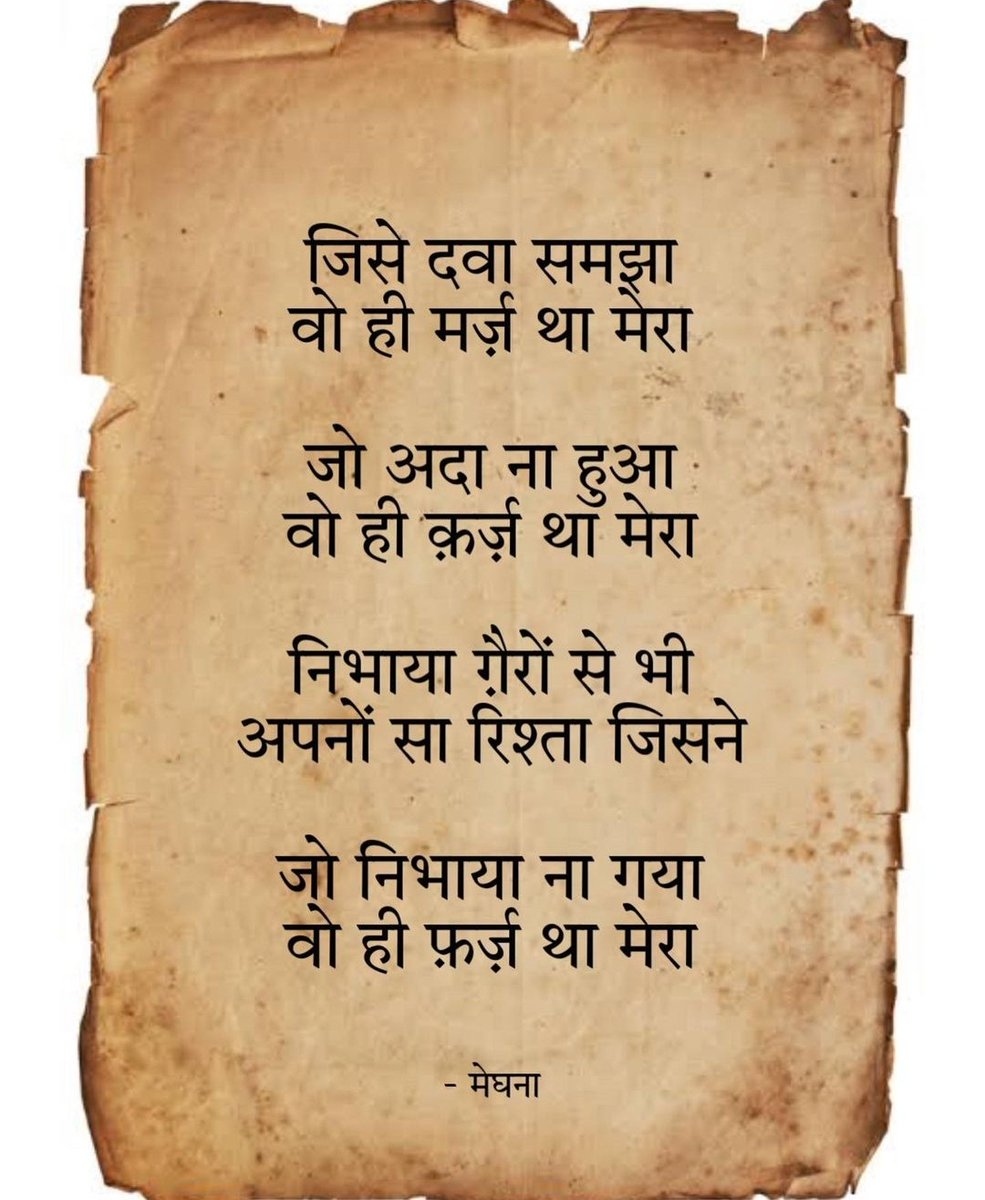 जिसे दवा समझा
वो ही मर्ज़ था मेरा
जो अदा ना हुआ
वो ही क़र्ज़ था मेरा
निभाया ग़ैरों से भी
अपनों सा रिश्ता जिसने
जो निभाया ना गया
वो ही फ़र्ज़ था मेरा
- मेघना